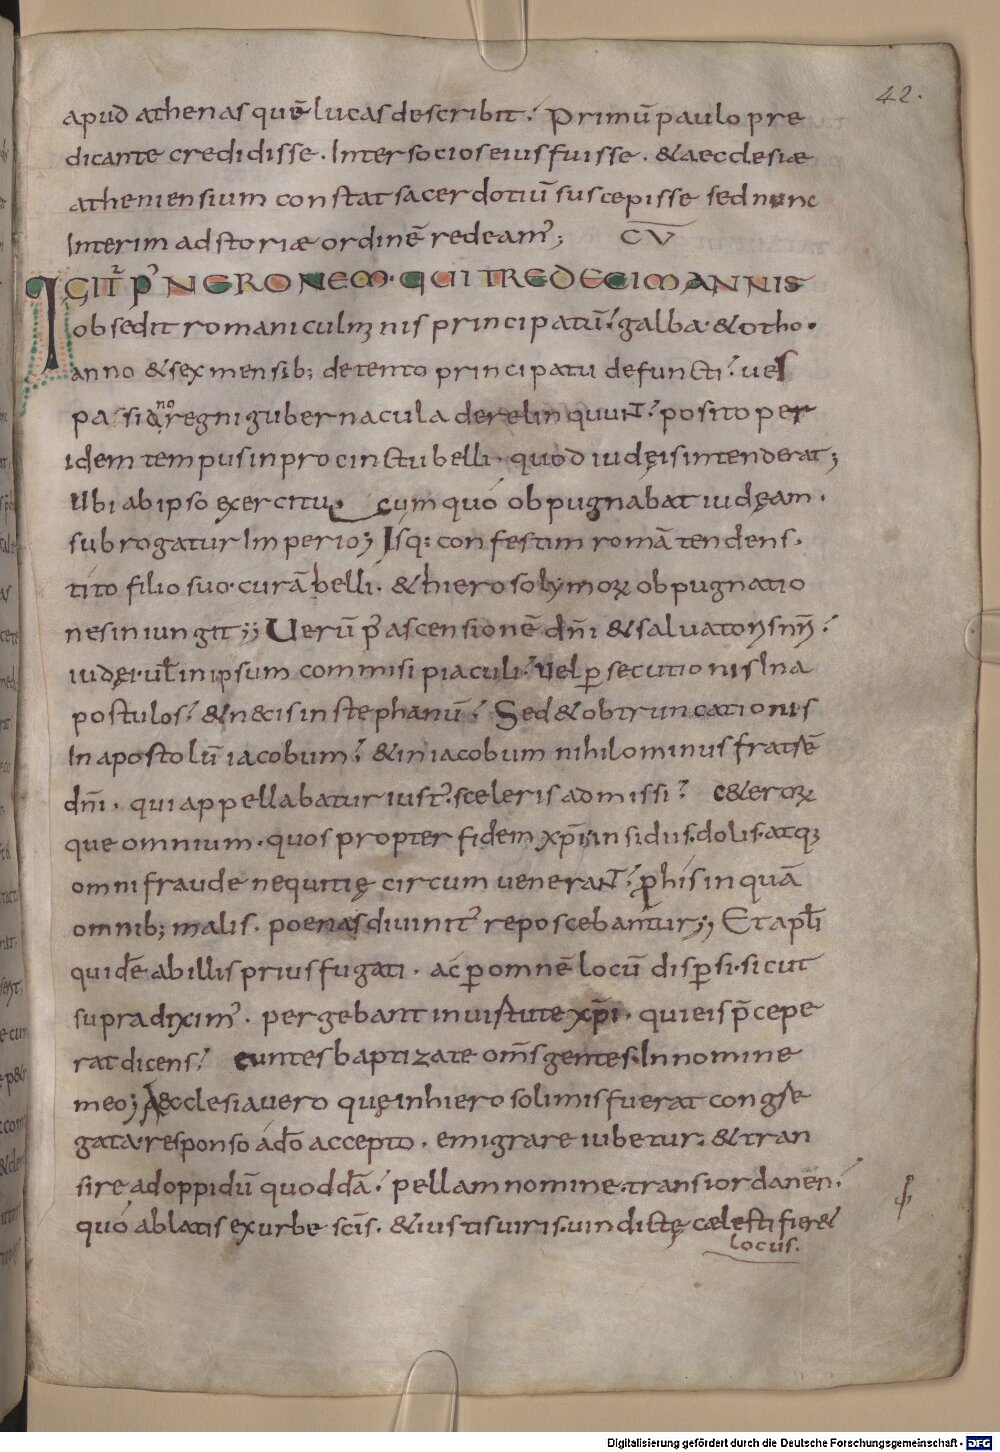 42.
apud athenas quē lucas describit. Primū paulo pre
dicante credidisse. Inter socios eius fuisse. & aecclesiæ
atheniensium constat sacerdotiū suscepisse sed nunc
Interim ad storiæ ordinē redeam᾽; CV
IGIT᾽ P᾽ NERONEM. QUI TREDECIM ANNIS
obsedit romani culmĩnis principatū. galba. & otho.
anno & sex mensib; detento principatu defuncti. ues
pasiano regni gubernacula derelinquunt. posito per
idem tempus in procinctu belli. quod iudęis intenderat;
Ubi ab ipso exercitu. cum quo obpugnabat iudęam.
subrogatur Imperio; Isq; confestim romā tendens.
tito filio suo. curā belli. & hierosolymoꝝ obpugnatio
nes iniungit; Uerū p᾽ ascensionē dñi & saluatoris nr̄i.
iudęi ul̄ in ipsum commisi piaculi. uel ꝑsecutionis In a
postulos. & necis in stephanū. Sed & obtruncationis
In apostolū iacobum. & in iacobum nihilominus fratrē
dñi. qui appellabatur iust᾽. sceleris admissi. c&eroꝝ
que omnium. quos propter fidem xp̄i insidiis. dolis. atq;
omni fraude nequitię circumuenerant. ꝓ his inquā
omnib; malis. poenas diuinit᾽ reposcebantur; Et apl̄i
quidē ab illis prius fugati. ac ꝑ omnē locū disꝑsi. sicut
supra dixim᾽. pergebant in uirtute xp̄i. qui eis p̄cepe
rat dicens. euntes baptizate om̄s gentes. In nomine
meo; Aecclesia uero quę in hierosolimis fuerat congre
gata. responso a dō accepto. emigrare iubetur. & tran
sire ad oppidū quoddā. pellam nomine. trans iordanen.
quo ablatis ex urbe scīs. & iustis uiris. uindictę cælesti fier&
locus.
Digitalisierung gefördert durch die Deutsche Forschungsgemeinschaft - DFG